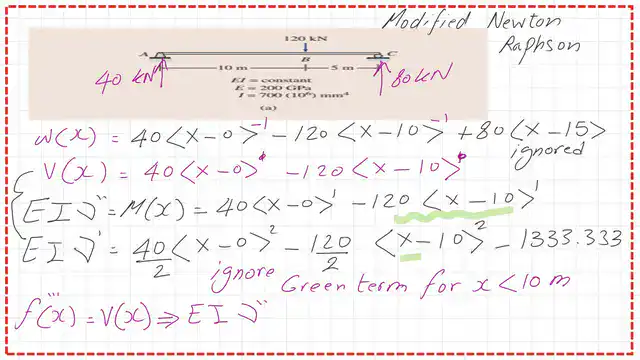 Modified Newton
Raphson
120 kN
A B C
10 m 5 m
40 kN 80 kN
EI = constant
E = 200 GPa
I = 700 (10⁶) mm⁴
(a)
w(x) = 40<x-0>⁻¹ - 120<x-10>⁻¹ + 80<x-15>
ignored
V(x) = 40<x-0>⁰ - 120<x-10>⁰
EIν'' = M(x) = 40<x-0>¹ - 120<x-10>¹
EIν' = 40/2 <x-0>² - 120/2 <x-10>² - 1333.333
ignore Green term for x<10 m
f'''(x) = V(x) ⇒ EIν'''